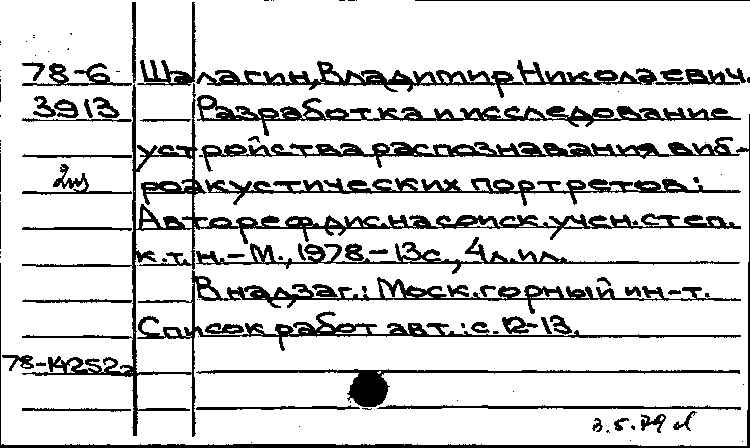 78-6 Шалагин, Владимир Николаевич.
3913 Разработка и исследование
устройства распознавания виб-
роакустических портретов:
Автореф. дис. на соиск. учен. степ.
к.т.н. - М., 1978. - 13с., 4л.ил.
В надзаг.: Моск. горный ин-т.
Список работ авт.: с. 12-13.
78-14252а
3.5.79